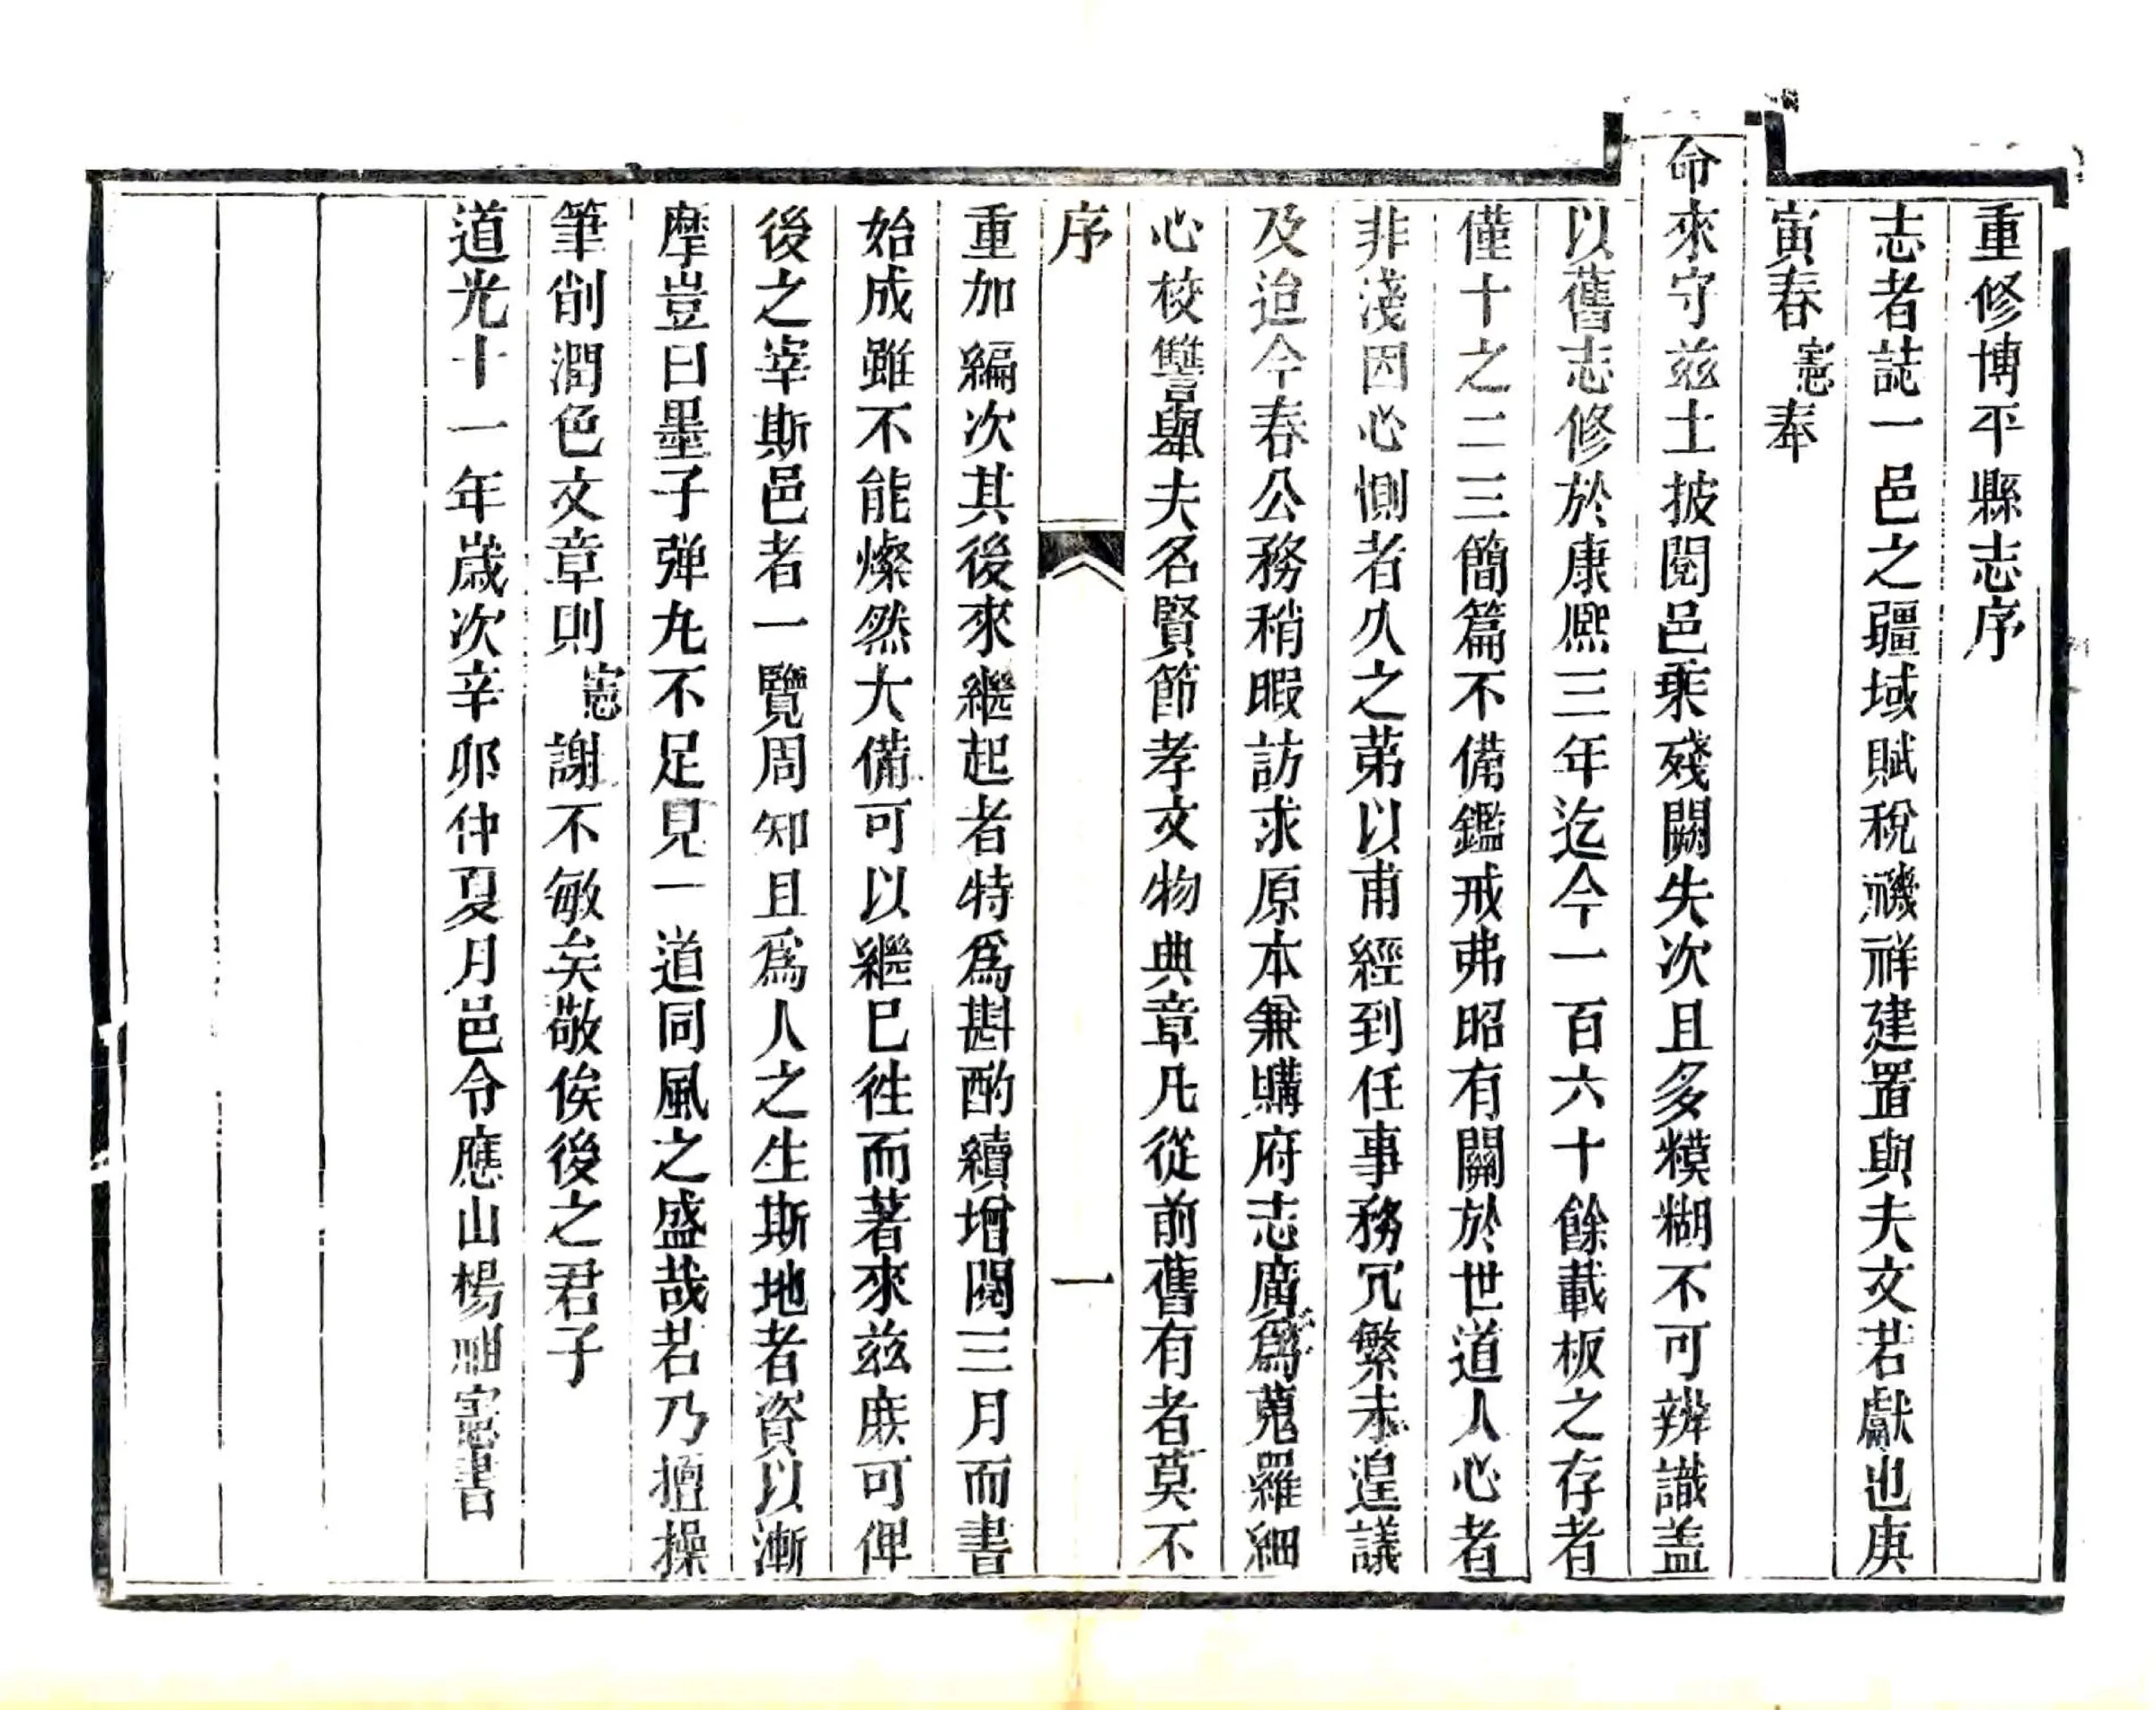 重修博平縣志序
志者誌一邑之疆域賦稅禨祥建置與夫文若獻也庚
寅春憲奉
命來守兹土披閱邑乘殘闕失次且多糢糊不可辨識盖
以舊志修於康熈三年迄今一百六十餘載板之存者
僅十之二三簡篇不備鑑戒弗昭有關於世道人心者
非淺因心惻者久之苐以甫經到任事務冗繁未遑議
及迨今春公務稍暇訪求原本兼購府志廣爲蒐羅細
心校讐與夫名賢節孝文物典章凡從前舊有者莫不
序
一
重加編次其後來繼起者特爲斟酌續增閱三月而書
始成雖不能燦然大備可以繼巳徃而著來兹庻可俾
後之宰斯邑者一覽周知且爲人之生斯地者資以漸
摩豈曰墨子弹丸不足見一道同風之盛哉若乃擅操
筆削潤色文章則憲謝不敏矣敬俟後之君子
道光十一年嵗次辛卯仲夏月邑令應山楊祖憲書